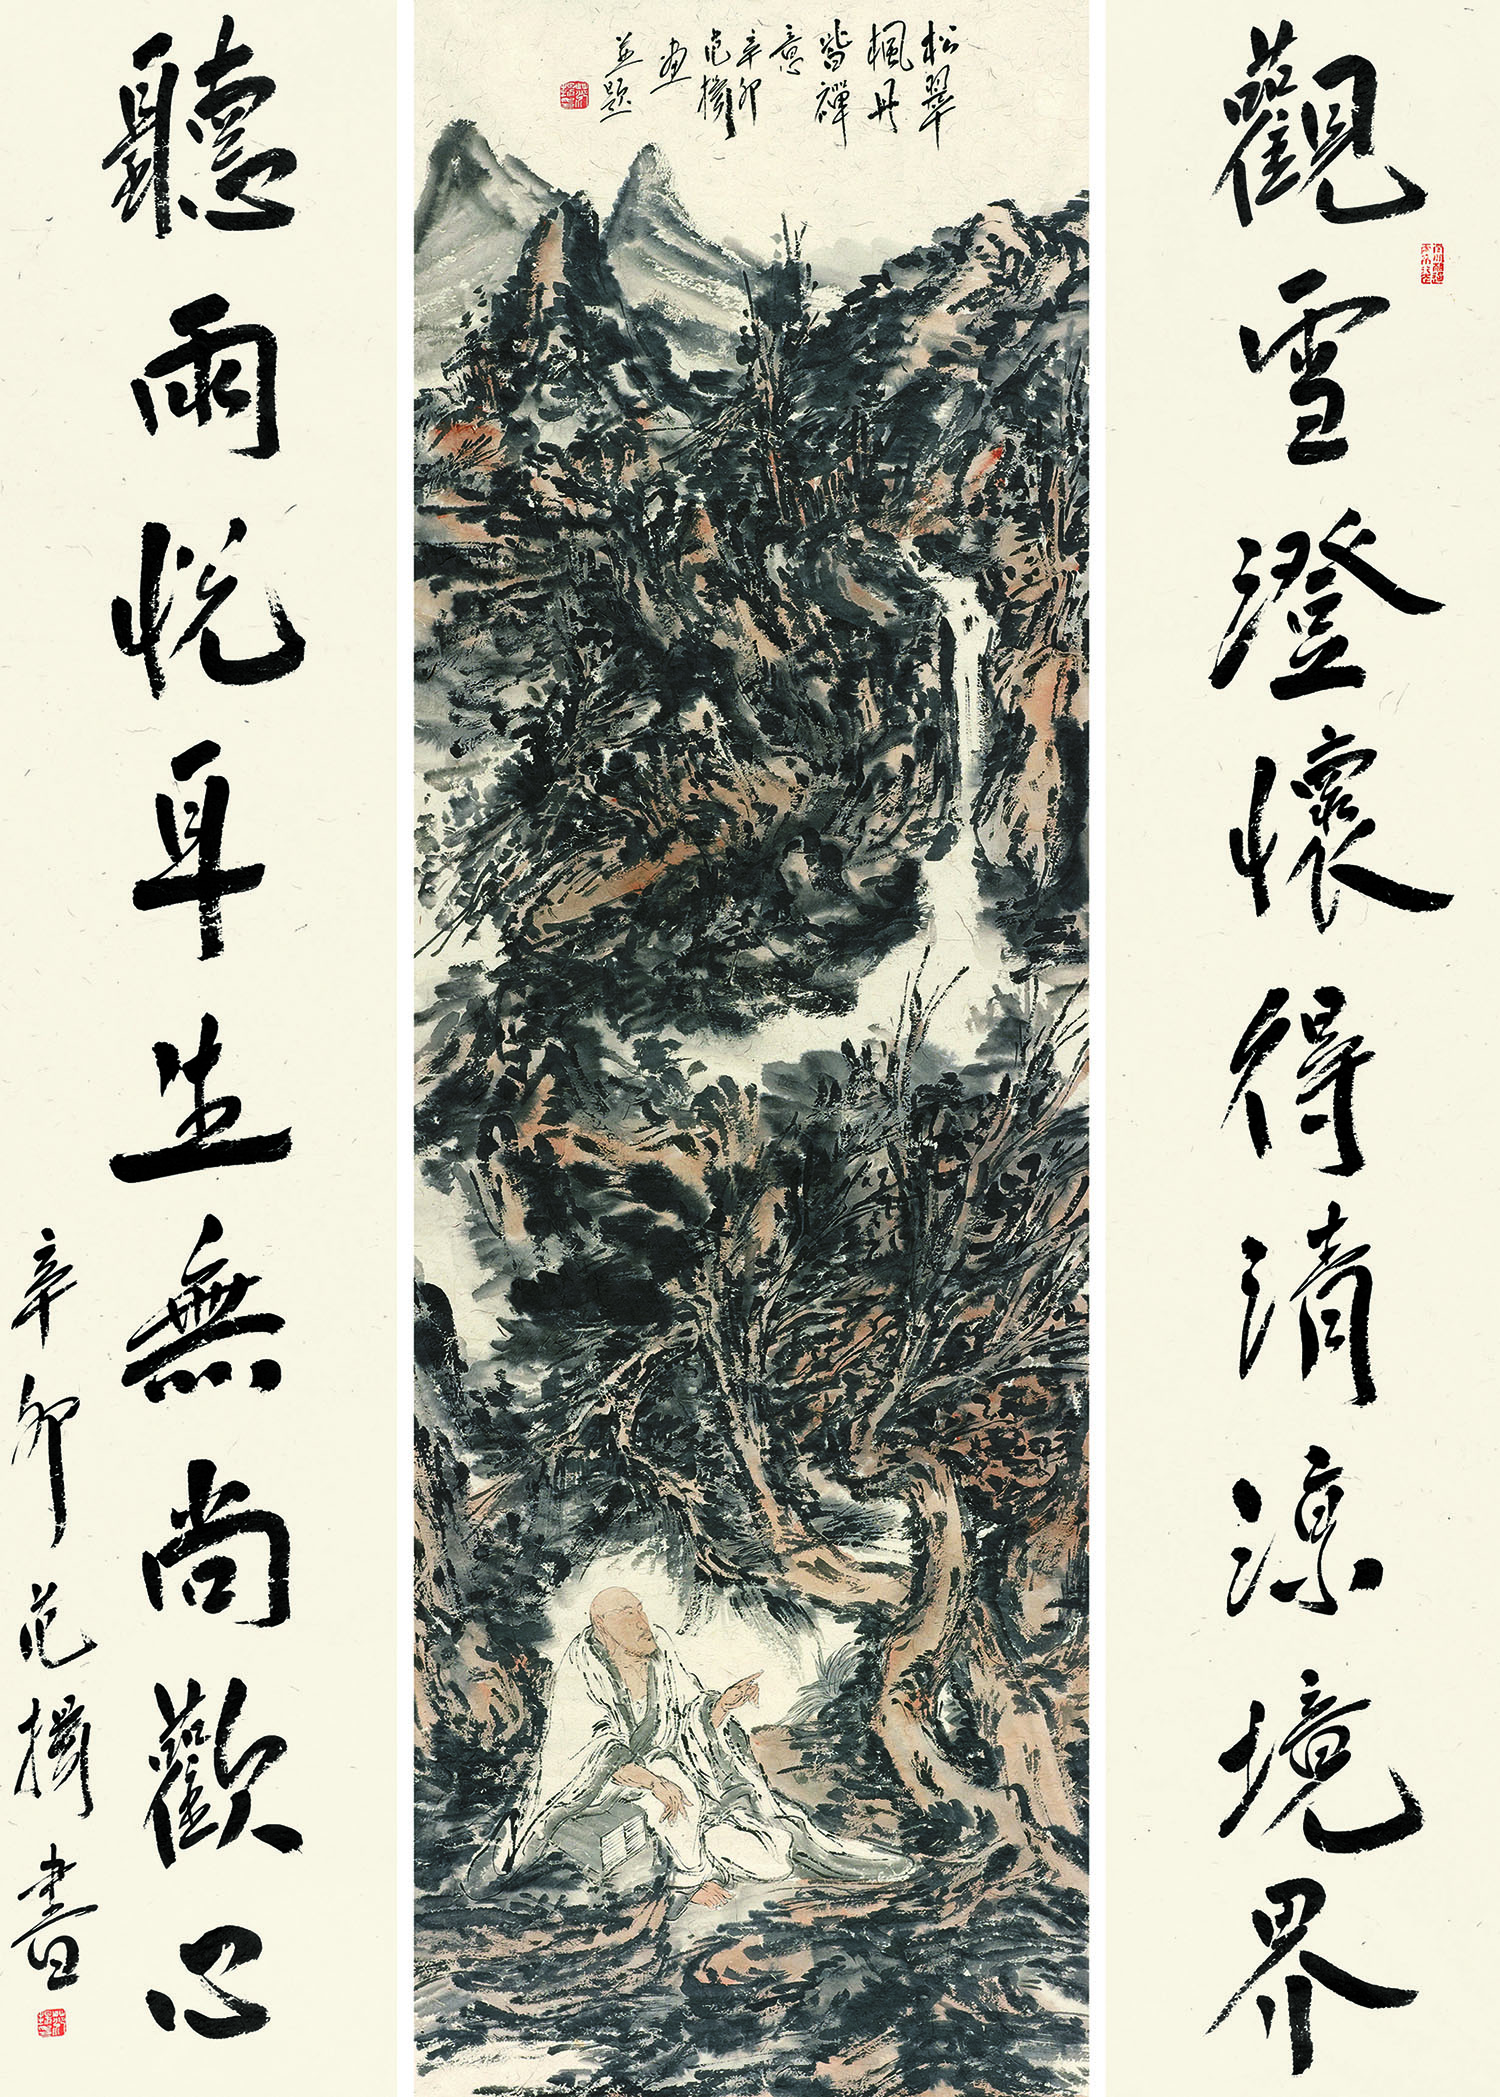 觀雪澄懷得清涼境界
松翠
楓丹
皆禪
意
辛卯
范攡
畫
並題
聽雨悦耳生無尚歡心
辛卯范攡書